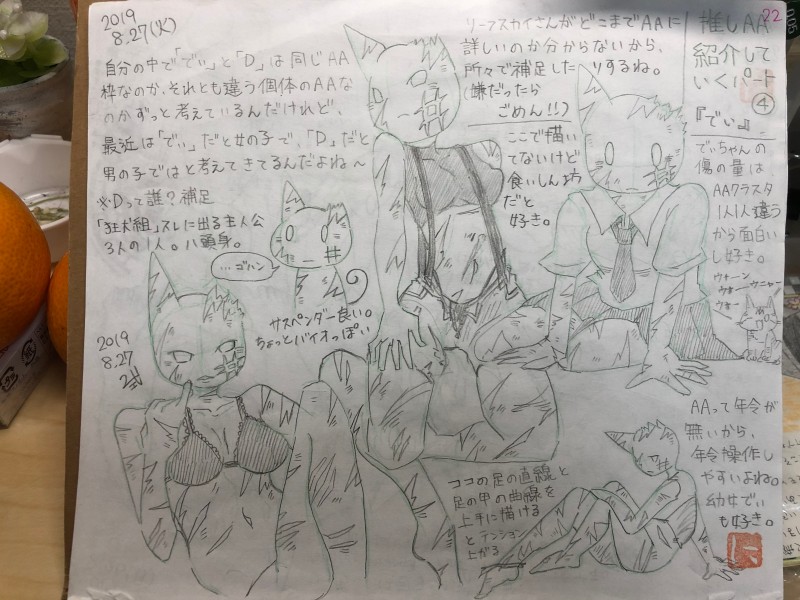 2019
8.27(火)
自分の中で「でぃ」と「D」は同じAA
枠なのか、それとも違う個体のAAな
のかずっと考えているんだけれど、
最近は「でぃ」だと女の子で、「D」だと
男の子ではと考えてきてるんだよね〜
※Dって誰?補足
「狂犬組」スレに出る主人公
3人の1人。八頭身。
…ゴハン
サスペンダー良い。
ちょっとバイオっぽい
リーフスカイさんがどこまでAAに
詳しいのか分からないから、
所々で補足したりするね。
(嫌だったら
ごめん!!)
ここで描い
てないけど
食いしん坊
だと
好き。
22
推しAA
紹介して
いくパート
④
『でぃ』
でぃちゃんの
傷の量は
AAクラスタ
1人1人違う
から面白い
し好き。
ウォーン
ウォー
ウニャー
ウォー
2019
8.27
ココの足の直線と
足の甲の曲線を
上手に描ける
とテンション
上がる
AAって年令が
無いから、
年令操作し
やすいよね。
幼女でぃ
も好き。